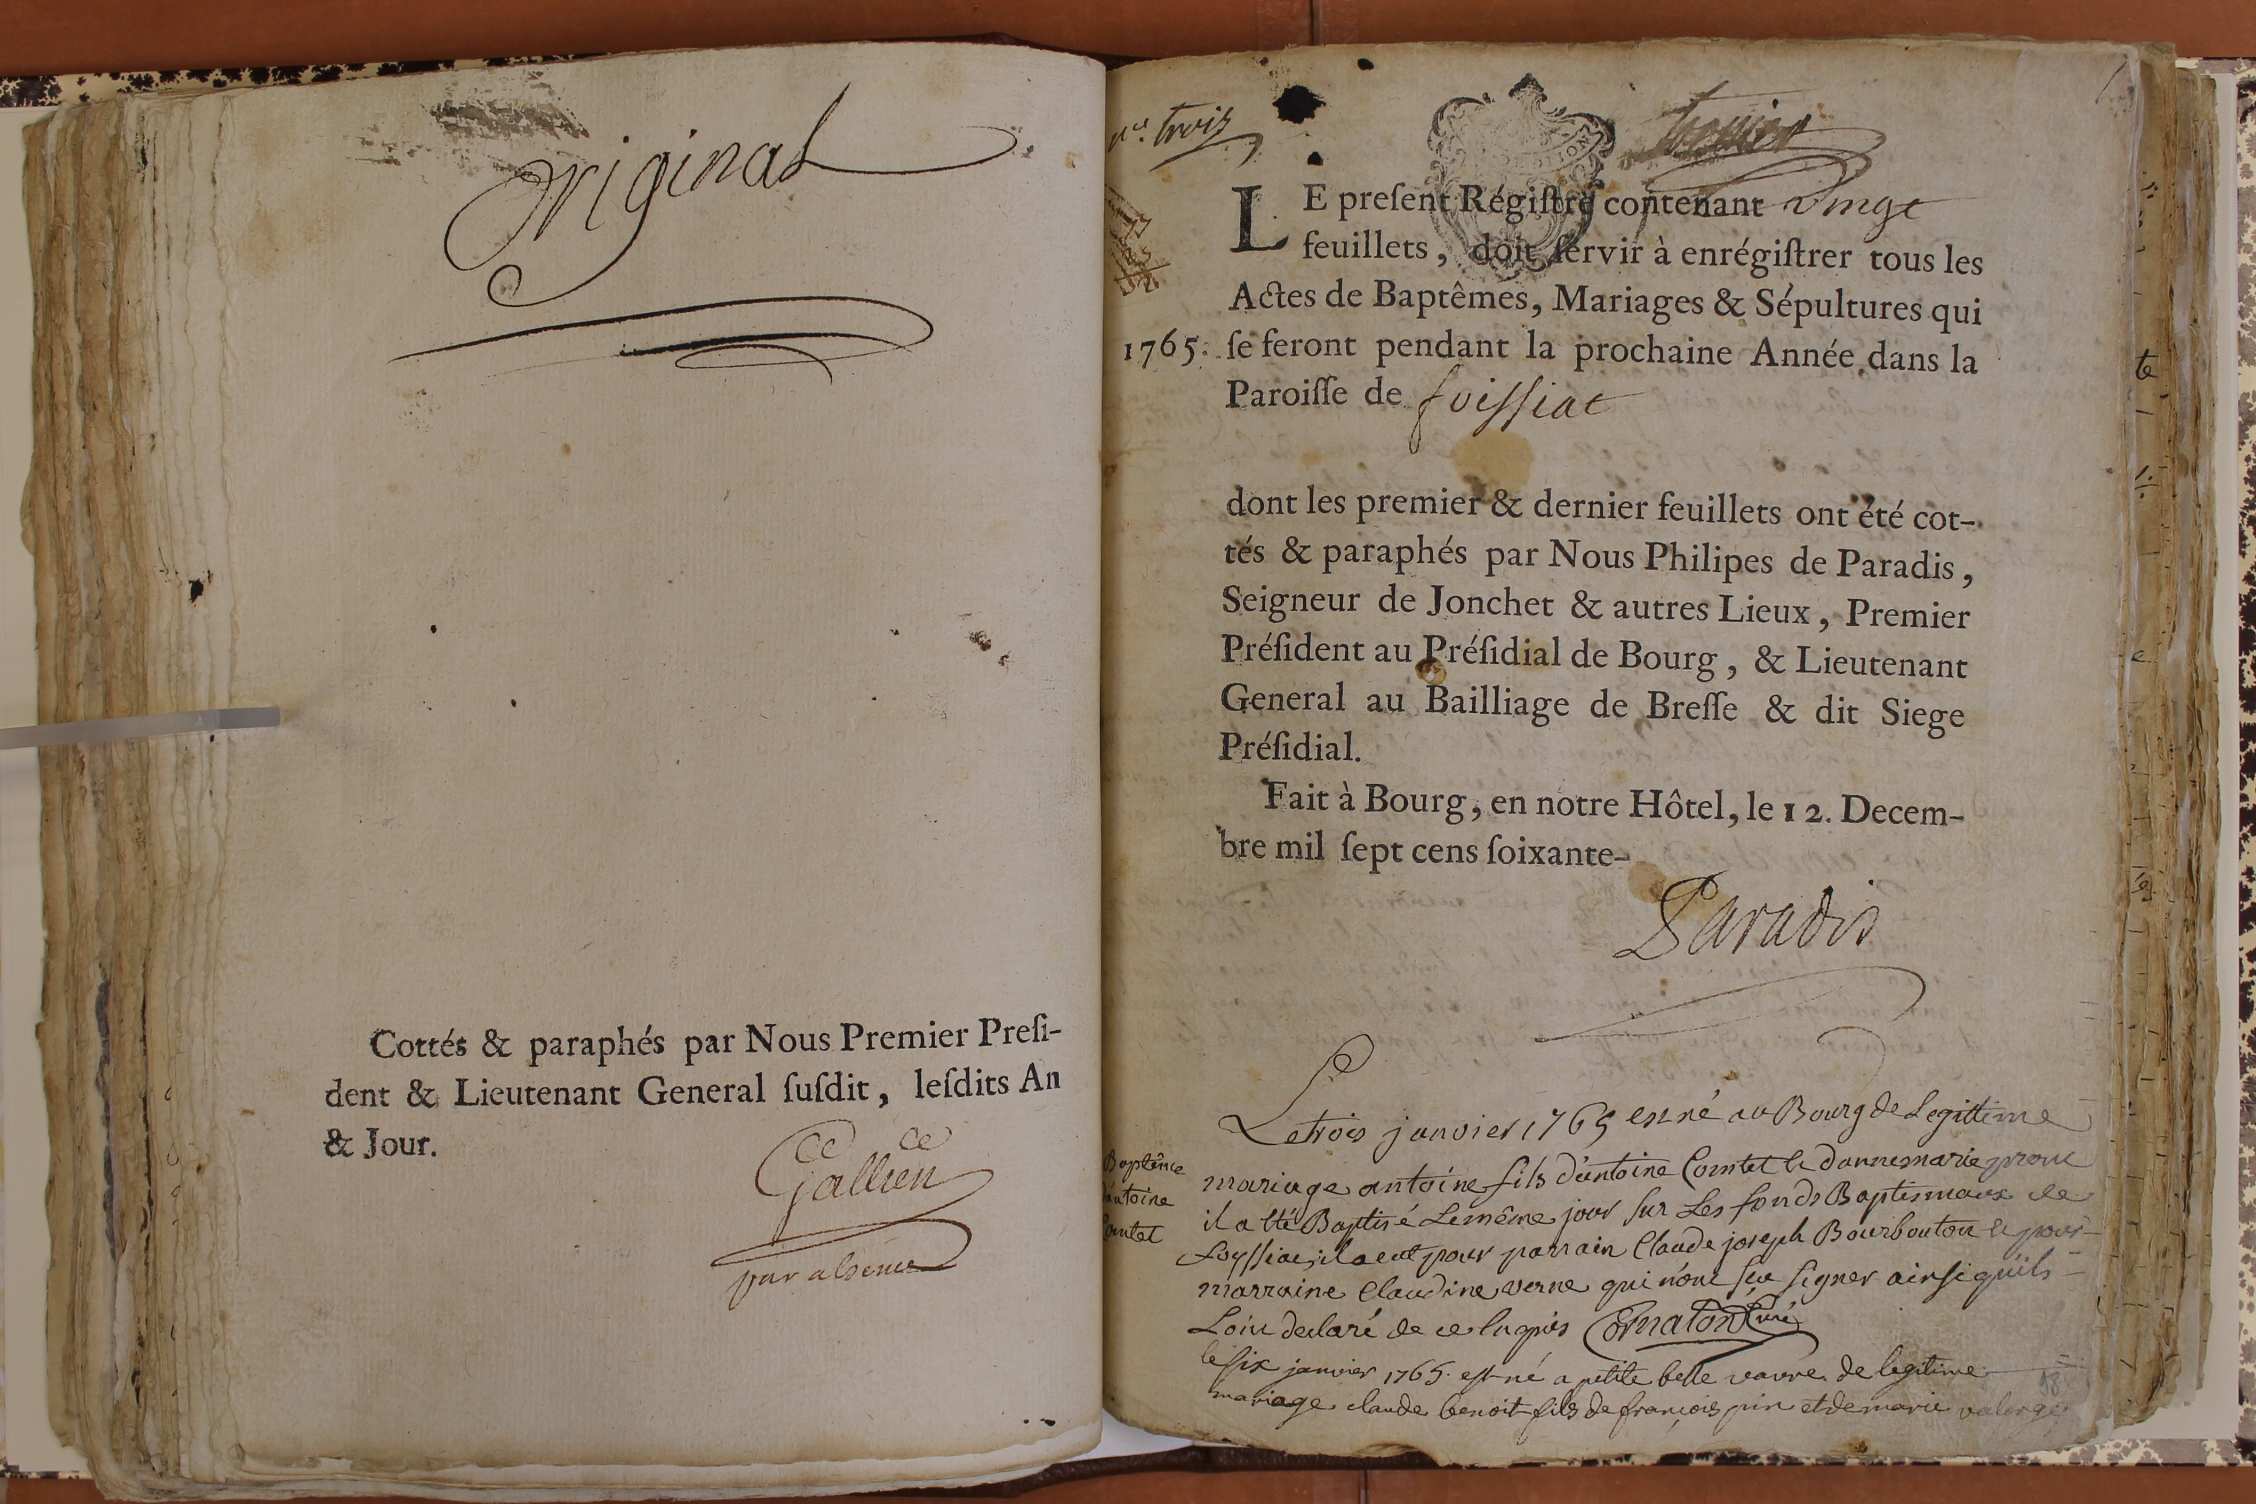 Original
Cottés & paraphés par Nous Premier Preſi-
dent & Lieutenant General ſuſdit, leſdits An
& Jour.
Gallien
par absence
trois
premier
LE preſent Régiſtre contenant vingt
feuillets, doit ſervir à enrégiſtrer tous les
Actes de Baptêmes, Mariages & Sépultures qui
1765. ſe feront pendant la prochaine Année dans la
Paroiſſe de foissiat
dont les premier & dernier feuillets ont été cot-
tés & paraphés par Nous Philipes de Paradis,
Seigneur de Jonchet & autres Lieux, Premier
Préſident au Préſidial de Bourg, & Lieutenant
General au Bailliage de Breſſe & dit Siege
Préſidial.
Fait à Bourg, en notre Hôtel, le 12. Decem-
bre mil ſept cens ſoixante-
Paradis
Le trois janvier 1765 est né au Bourg de Legittime
Baptême
d'antoine
Comtet
mariage antoine fils d'antoine Comtet et d'annemarie
il a été Baptisé Le même jour sur Les fonds Baptismaux de
foyssiac, il a eut pour parrain Claude joseph Bourbouton et pour
marraine Claudine verne qui n'ont sçu signer ainsi qu'ils
L'oin declaré de ce Enquis Cornaton Curé
le six janvier 1765. est né a petite belle vavre de legitime
mariage claude benoit fils de françois pin et de marie